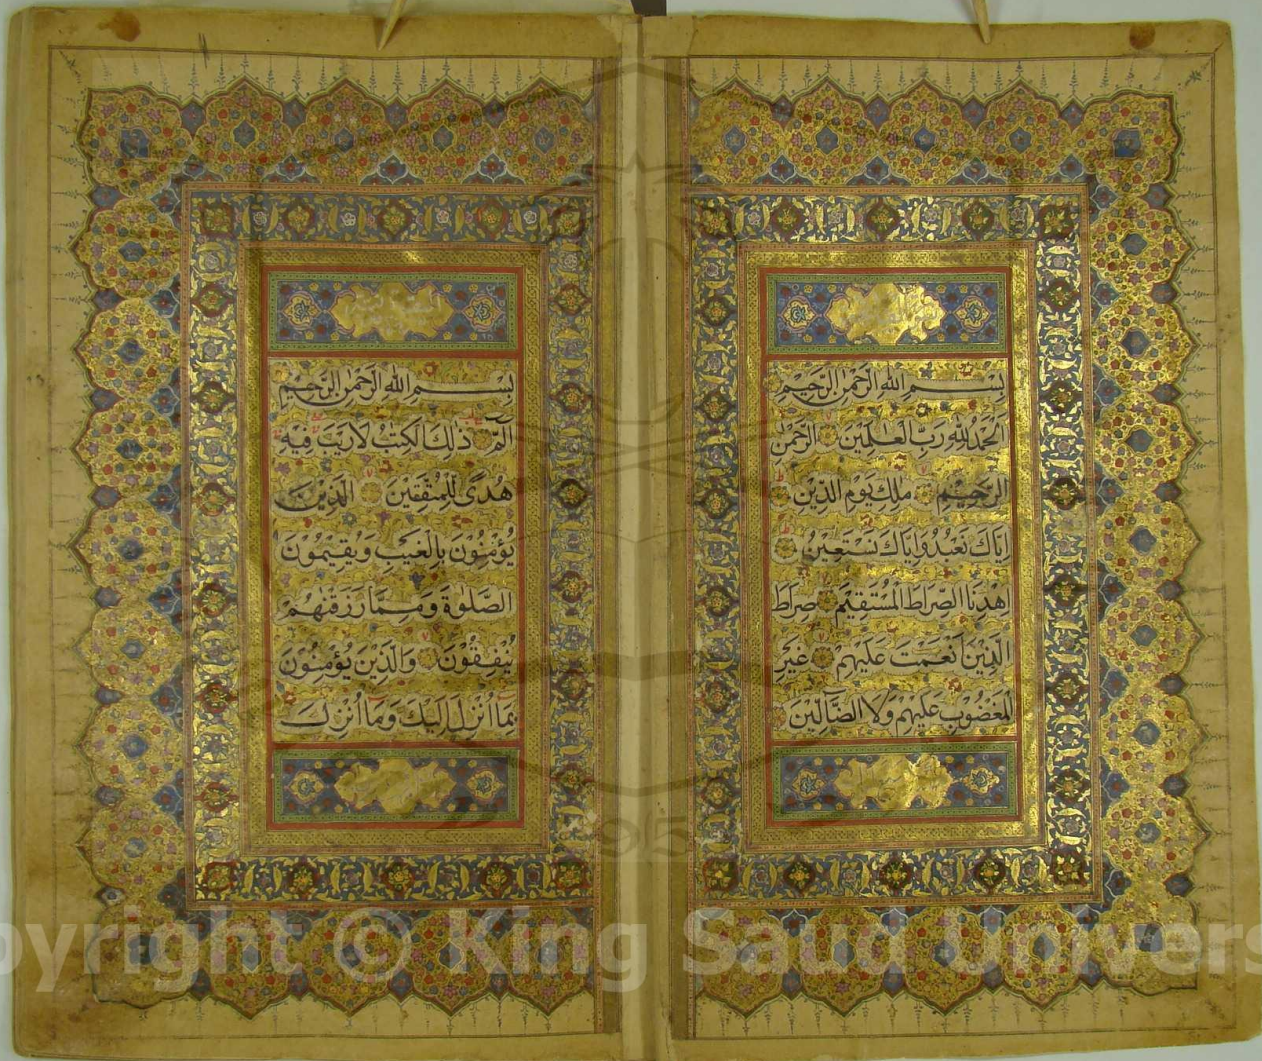 بسم الله الرحمن الرحيم
الحمد لله رب العلمين الرحمن
الرحيم ملك يوم الدين
اياك نعبد و اياك نستعين
اهدنا الصراط المستقيم صراط
الذين انعمت عليهم غير
المغضوب عليهم ولا الضالين
بسم الله الرحمن الرحيم
الم ذلك الكتب لا ريب فيه
هدى للمتقين الذين
يومنون بالغيب و يقيمون
الصلوة و مما رزقنهم
ينفقون و الذين يومنون
بما انزل اليك و ما انزل
1957
opyright © King Saud Univers